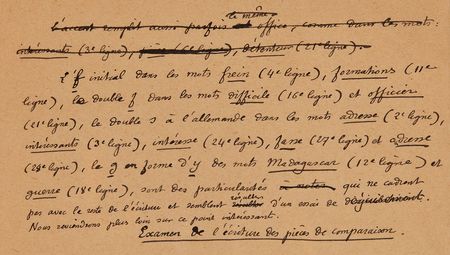 le même
L'accent remplit aussi parfois office, comme dans les mots:
intéressants (3e ligne), (6e ligne), détenteur (21e ligne).
L'f initial dans les mots frein (4e ligne), formations (11e
ligne), le double f dans les mots difficile (16e ligne) et officier
(21e ligne), le double s à l'allemande dans les mots adresse (2e ligne),
intéressants (3e ligne), intéresse (24e ligne), fasse (27e ligne) et adresse
(28e ligne), le g en forme d'y des mots Madagascar (12e ligne) et
guerre (18e ligne), sont des particularités à noter qui ne cadrent
pas avec le reste de l'écriture et semblent résulter d'un essai de déguisement.
Nous reviendrons plus loin sur ce point intéressant.
Examen de l'écriture des pièces de comparaison.